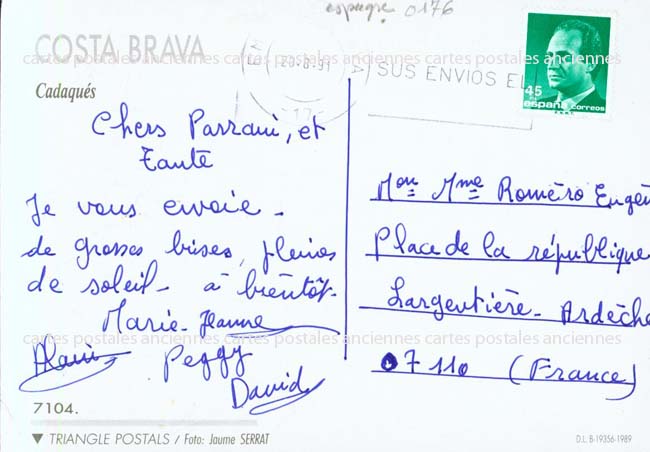 espagne 0176
COSTA BRAVA
cartes postales anciennes cartes postales anciennes cartes postales anciennes
20-8-91
SUS ENVIOS
45
españa correos
Cadaqués
Chers Parrain, et
Tante
Je vous envoie -
de grosses bises, pleines
de soleil - à bientôt -
Marie-Jeanne
Alain Peggy
David
Mon Mme Roméro Eugèn
Place de la république
Largentière - Ardèche
07 110 (France)
cartes postales anciennes cartes postales anciennes cartes postales anciennes
7104.
▼ TRIANGLE POSTALS / Foto: Jaume SERRAT
D.L. B-19356-1989